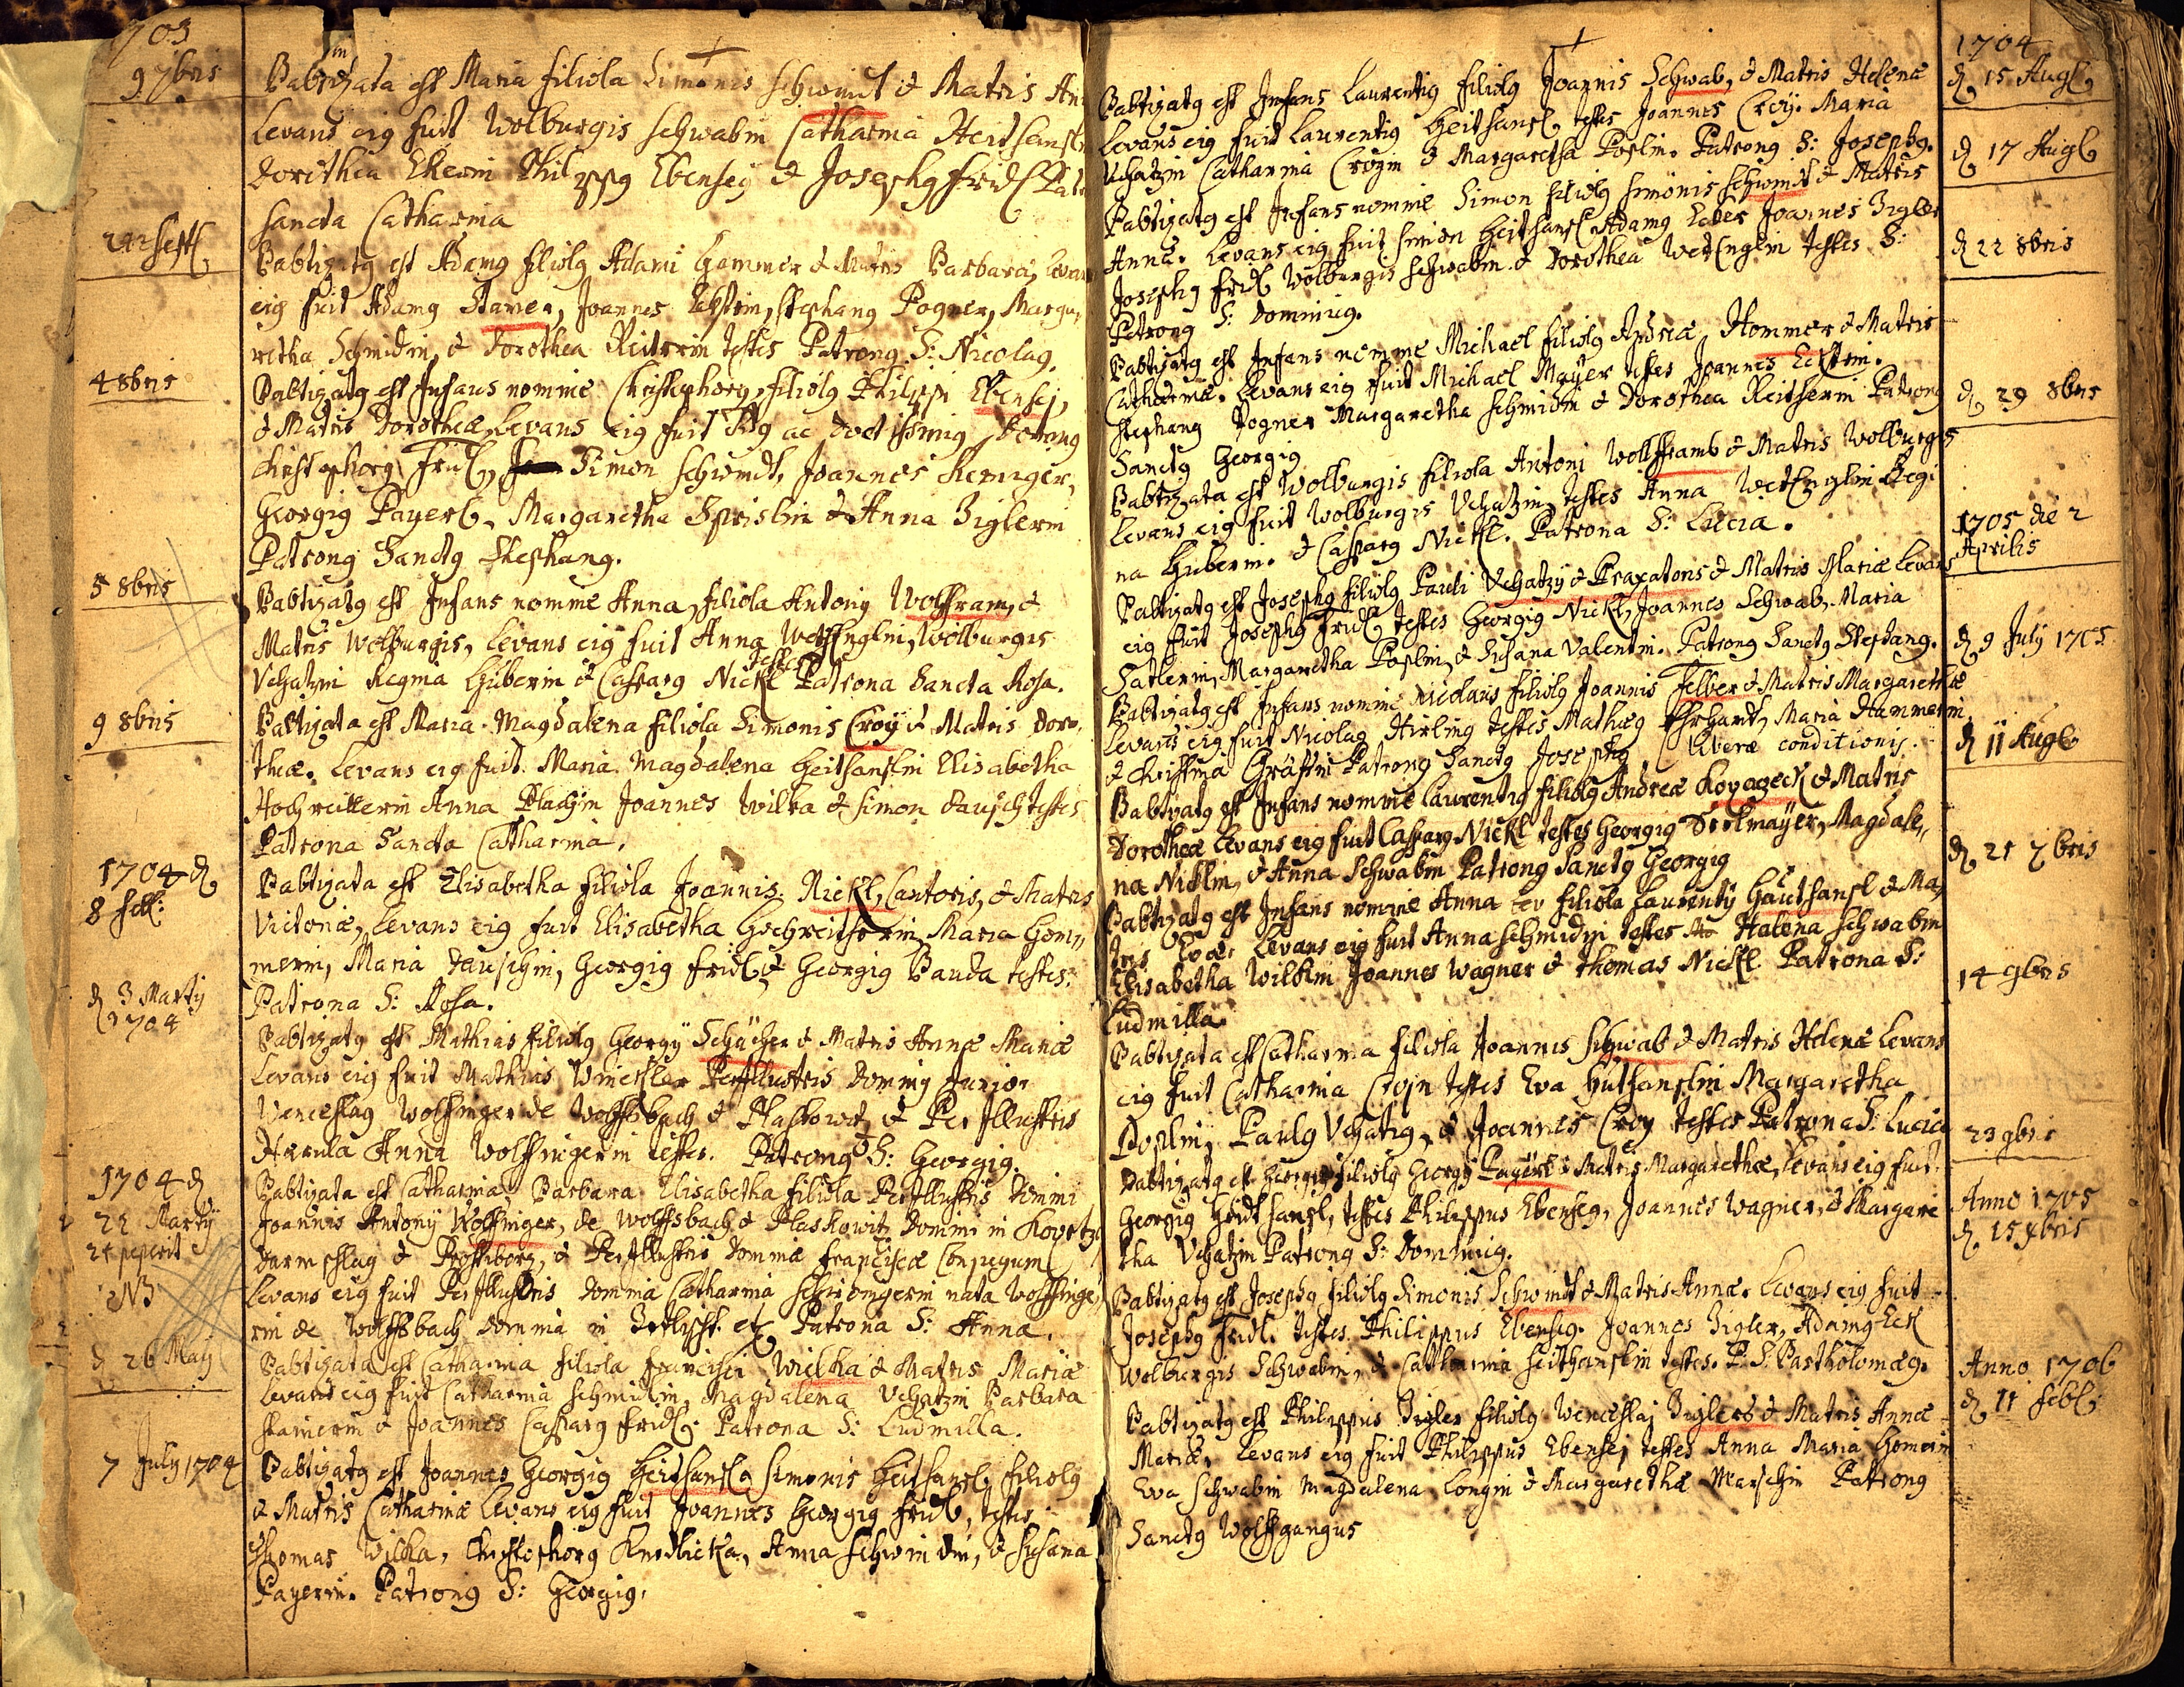 1703
9 7bris
Babtizata est Maria filiola Simonis Schwimt & Matris An
Levans eig fuit Wolburgis Schwabin Catharina Heitsansl
Dorithea Ekerin Philippg Ebensey & Josephg Fridl Pat
Sancta Catharina
Sept
Babtizatg est Adamg filiolg Adami Hammer & Matris Barbara, Levan
eig fuit Adamg Stamer, Joannes Ekstein, Stephang Pogner, Marga,
retha Schmidin, & Dorothea Reiterin testes Patrong S: Nicolag.
4 8bris
Babtizatg est Infans nomine Christophorg, filiolg Philippi Ebensej,
& Matris Dorotheæ, Levans eig fuit ac doctissimg
Christophorg Fridl, Simon Schwindt, Joannes Keringer,
Georgig Payerl, Margaretha & Anna Ziglerin
Patrong Sanctg Stephang.
5 8bris
Babtizatg est Infans nomine Anna, filiola Antonij Wolfram, &
Matris Wolburgis, Levans eig fuit Anna Wetenglin, Wolburgis
Vchatzin Regina Huberin & Casparg Nickl testes Patrona Sancta Rosa.
9 8bris
Babtizata est Maria Magdalena filiola Simonis Croy & Matris Doro,
theæ. Levans eig fuit Maria Magdalena Heitsanslin Elisabetha
Hochreitterin Anna Plachin Joannes Wilka & Simon Dausch testes
Patrona Sancta Catharina.
1704 d
8 feb:
Babtizata est Elisabetha filiola Joannis Nickl, Cantoris, & Matris
Victoriæ, Levans eig fuit Elisabetha Hochreitherin Maria Hom,,
merin, Maria Dauschin, Georgig Fridl & Georgig Bauda testes.
Patrona S: Rosa.
d 3 Martij
1704
Babtizatg est Mathias filiolg Georgÿ Schücher & Matris Annæ Mariæ
Levans eig fuit Mathias Winckler Perillustris Doming Junior
Wenceslag Wolffinger de Wolffsbach & Plaskowit, & Perillustris
Anna Wolffingerin testes. Patrong S: Georgig.
1704 d
22 Martÿ
21 peperit
NB
Babtizata est Catharina Barbara Elisabetha filiola Perillustris Domini
Joannis Antonÿ Wolffinger, de Wolffsbach & Plaskowitz Domini in
Darmschlag &, & Perillustris Dominæ Franciscæ Conjugum
Levans eig fuit Perillustris Domina Catharina nata Wolffinge,,
rin de Wolffsbach Domina in Patrona S: Anna.
d 26 Maij
Babtizata est Catharina filiola Francisci Wilka & Matris Mariæ
Levans eig fuit Catharina Schmidin, Magdalena Vchatzin Barbara
Stamerin & Joannes Casparg Fridl. Patrona S: Ludmilla.
7 July 1704
Babtizatg est Joannes Georgig Heitsansl Simonis Heitsansl filiolg
& Matris Catharinæ Levans eig fuit Joannes Georgig Fridl, testes
Thomas Wilka, Christophorg Knedlicka, Anna Schwindin, & Susana
Payerin. Patrong S: Georgig.
1704
d 15 Augl
Babtizatg est Infans Laurentig filiolg Joannis Schwab, & Matris Helenæ
Levans eig fuit Laurentig Heitsansl testes Joannes Croy. Maria
Vchatzin Catharina Croyin & Margaretha Poslin. Patrong S: Josephg.
d 17 Augl
Babtizatg est Infans nomine Simon filiolg Simonis Schwindt & Matris
Annæ. Levans eig fuit Simon Heitsansl Adamg Joannes Zigler
Josephg Fridl Wolburgis Schwabin & Dorothea Wetenglin testes S:
Patrong S: Dominicg.
d 22 8bris
Babtizatg est Infans nomine Michael filiolg Andreæ Hommer & Matris
Catharinæ. Levans eig fuit Michael Mayer testes Joannes Eckstein.
Stephang Pogner Margaretha Schmidin & Dorothea Reitherin Patrong
Sanctg Georgig
d 29 8bris
Babtizata est Wolburgis filiola Antoni Wollframb & Matris Wolburgis
Levans eig fuit Wolburgis Vchatzin testes Anna Wetenglin Regi
na Huberin. & Casparg Nickl. Patrona S: Lucia.
1705 die 2
Aprilis
Babtizatg est Josephg filiolg Pauli Vchatzÿ & Braxatoris & Matris Mariæ Levans
eig fuit Josephg Fridl testes Georgig Nickl, Joannes Schwab, Maria
Satlerin, Margaretha Poslin, & Susana Valentin. Patrong Sanctg Stephang.
d 9 July 1705
Babtizatg est Infans nomine Nicolaus filiolg Joannis Felber & Matris Margarethæ
Levans eig fuit Nicolag Hirling testes Mathæg Ehrhardt, Maria Hammerin
& Christina Gräffin Patrong Sanctg Josephg Liberæ conditionis.
d 11 Augl
Babtizatg est Infans nomine Laurentig filiolg Andreæ Kovazeck & Matris
Dorotheæ Levans eig fuit Casparg Nickl testes Georgig Stelmayer, Magdale,,
na Niklin, & Anna Schwabin Patrong Sanctg Georgig
d 21 7bris
Babtizatg est Infans nomine Anna filiola Laurentÿ Hautsansl & Ma,
tris Evæ. Levans eig fuit Anna Schmidin testes Halena Schwabin
Elisabetha Wilkin Joannes Wagner & Thomas Nickl Patrona S:
Ludmilla
14 9bris
Babtizata est Catharina filiola Joannis Schwab & Matris Helenæ Levans
eig fuit Catharina Croyin testes Eva Hutsanslin Margaretha
Poslin, Paulg Vchatzig, & Joannes Croy testes Patrona S: Lucia
23 9bris
Babtizatg est Georgig filiolg Georgÿ Payerl & Matris Margarethæ, Levans eig fuit
Georgig Heitsansl, testes Philippus Ebenseg, Joannes Wagner, & Margare
tha Vchatzin Patrong S: Dominicg.
Anno 1705
d 15 xbris
Babtizatg est Josephg filiolg Simonis Schwindt & Matris Annæ. Levans eig fuit
Josephg Fridl. testes Philippus Ebenseg. Joannes Zigler, Adamg Eck
Wolburgis Schwabin, & Catharina Heithanslin testes. P. S. Bartholomæg.
Anno 1706
d 11 Febl
Babtizatg est Philippus Zigler filiolg Wenceslaj Ziglers & Matris Annæ
Mariæ, Levans eig fuit Philippus Ebensej testes Anna Maria Homerin
Eva Schwabin Magdalena Longin & Margaretha Marschin Patrong
Sanctg Wolffgangus